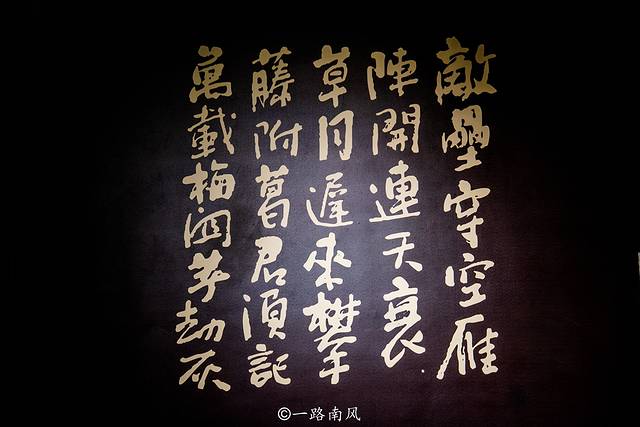 敵壘穿空雁
陣開連天衰
草月遲來攀
藤附葛君須記
萬載梅関著劫灰
©一路南风